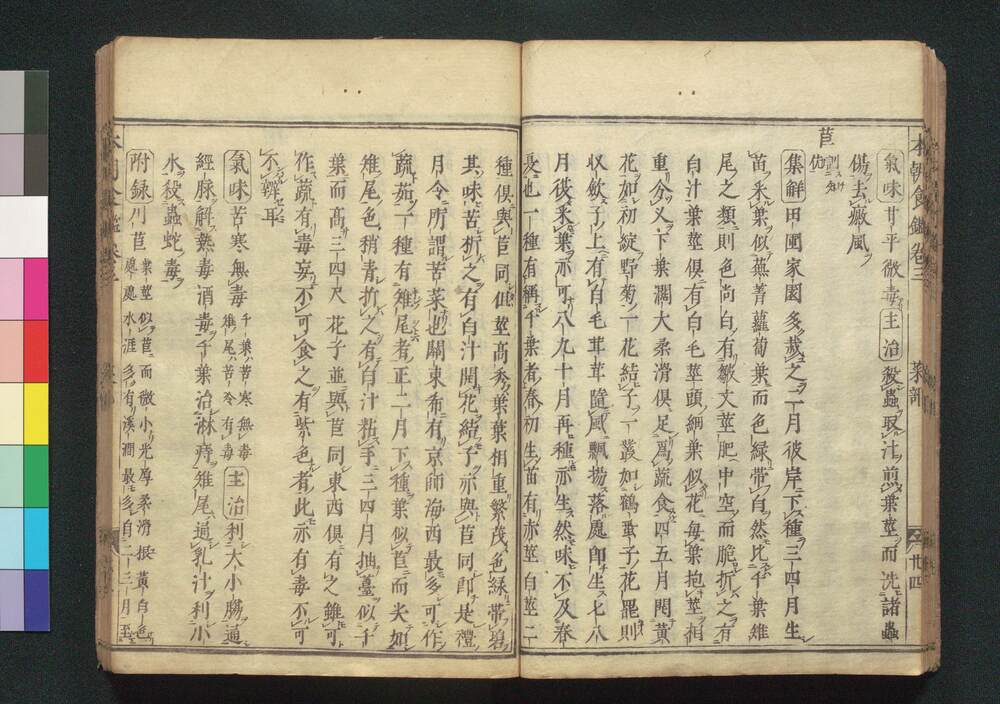 氣味甘平微毒主治殺蟲取汁煎葉莖而洗諸蟲
傷去癜風
苣
訓知
佐
集解田圃家園多栽之二月彼岸下種三四月生
苗采葉似蕪菁蘿蔔葉而色綠帶白然比千葉雉
尾之類則色尚白有皺文莖肥中空而脆折之有
白汁葉莖俱有白毛莖頭細葉似花毎葉抱莖相
重分叉下葉濶大柔滑俱足爲蔬食四五月開黃
花如初綻野菊一花結子一叢如鶴虱子花罷則
收斂子上有白毛茸茸隨風飄揚落處即生七八
月後采葉亦可八九十月再種亦生然味不及春
長也一種有稱千葉者春初生苗有赤莖白莖二
種俱與苣同但莖高秀葉葉相重繁茂色綠帶碧
其味苦折之有白汁開花結子亦與苣同即是禮
月令所謂苦菜也關東希有京師海西最多可作
蔬茹一種有雉尾者正二月下種葉似苣而尖如
雉尾色稍青折之有白汁粘手三四月抽薹似千
葉而高三四尺花子並與苣同東西俱有之雖可
作蔬有毒矣不可食之有紫色者此亦有毒不可
不辨耳
氣味苦寒無毒千葉苦寒無毒
雉尾苦冷有毒主治利大小腸通
經脉解熱毒酒毒千葉治淋痔雉尾通乳汁利小
水殺蟲蛇毒
附錄川苣葉莖似苣而微小光厚柔滑振黃白色
處處水涯多有溪澗最多自二三月至
本朝食鑑卷三
菜部
廿四